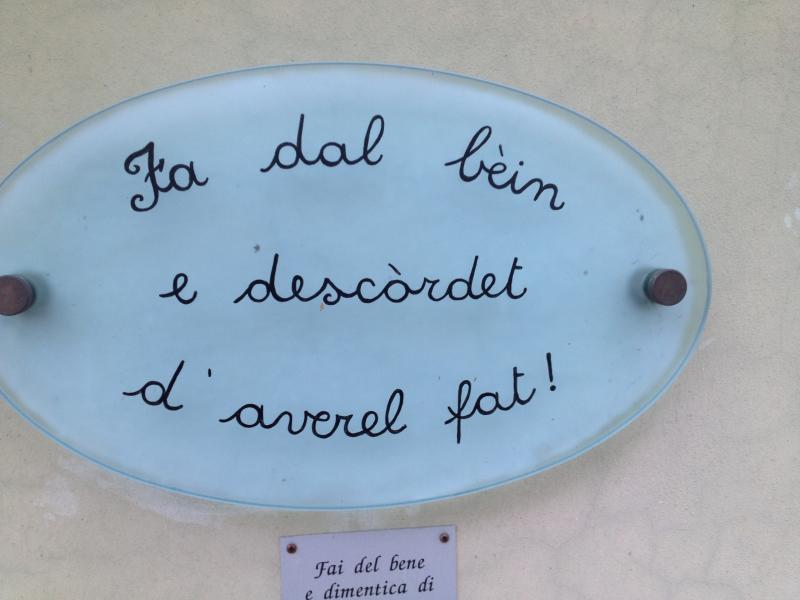 Fa dal bèin
e descòrdet
d'averel fat!
Fai del bene
e dimentica di